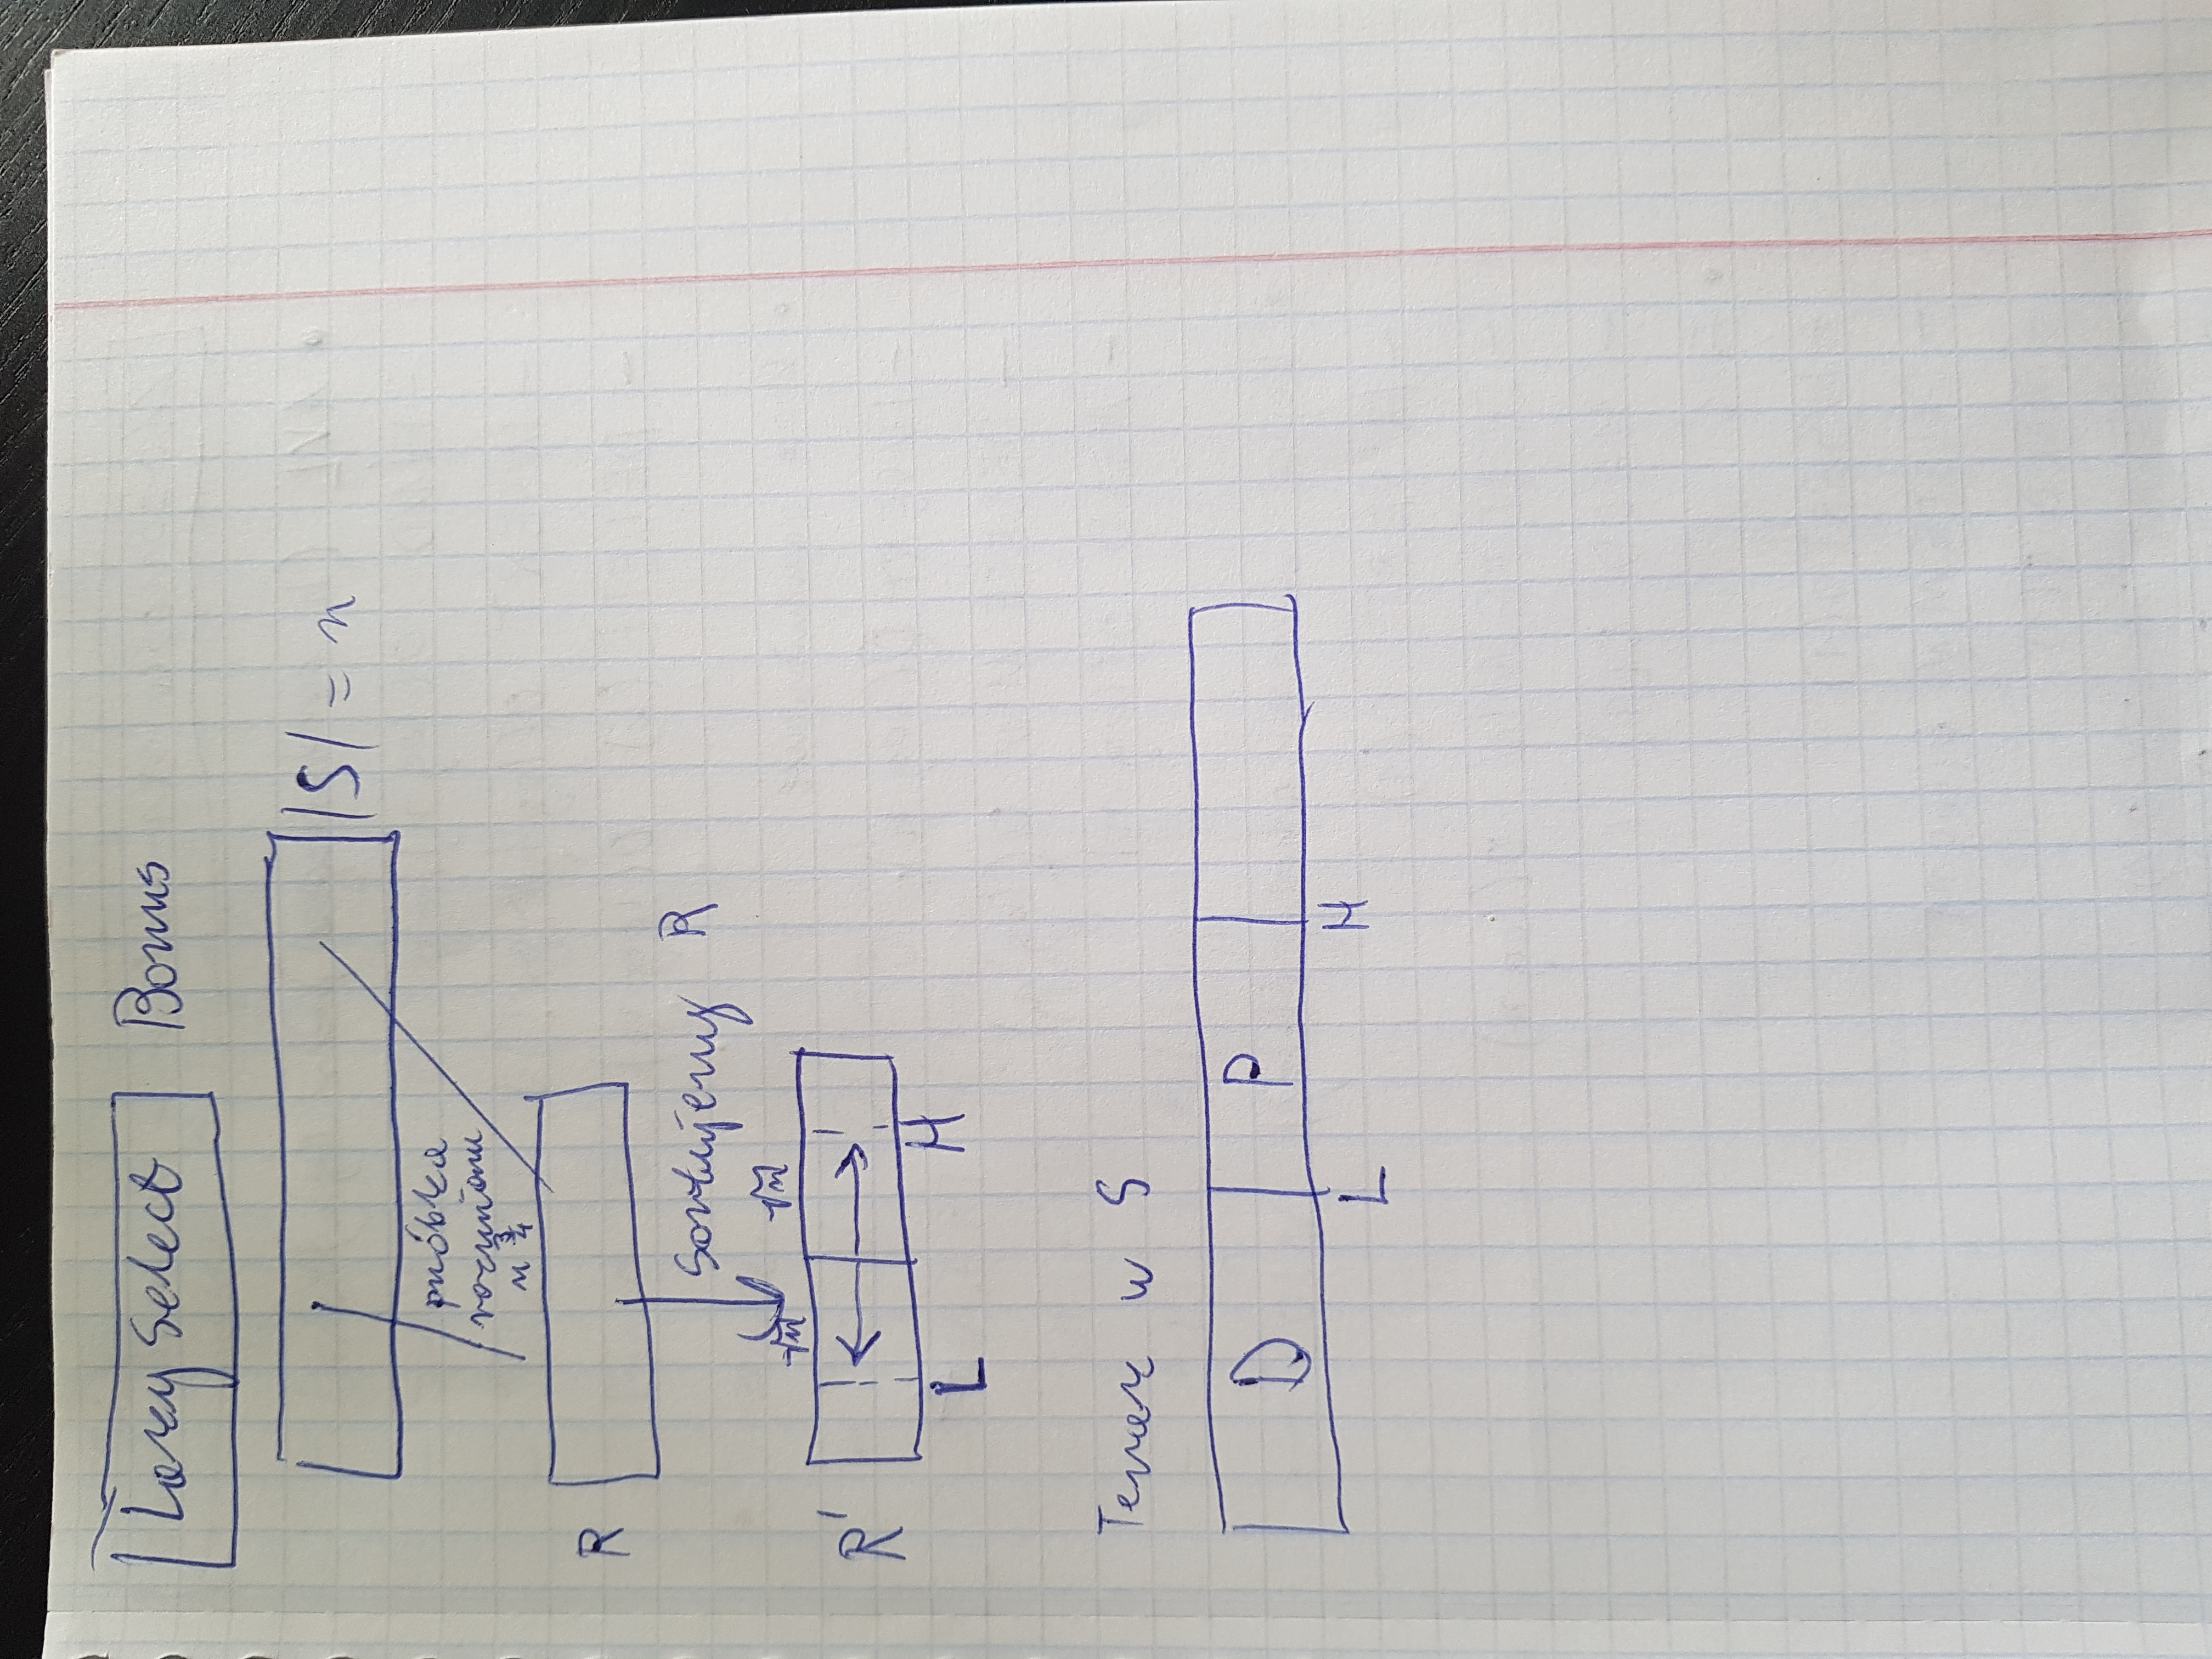 Lazy Select Bonus
|S| = n
próbka
rozmiaru
n^{3/4}
R
Sortujemy R
√n √n
R'
L H
Teraz w S
D P
L H